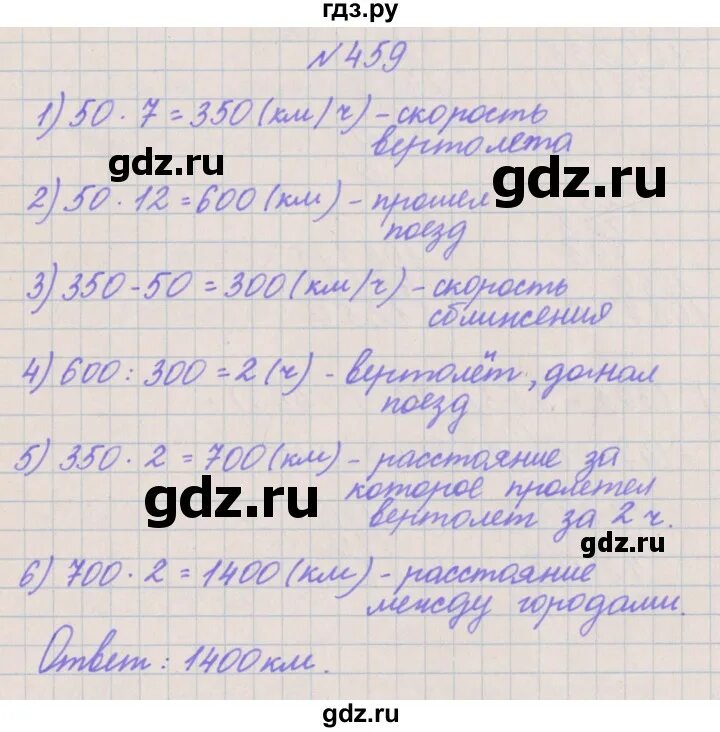 гдз.ру
№459
1) 50 · 7 = 350 (км/ч) - скорость
вертолета
gdz.ru
gdz.ru
2) 50 · 12 = 600 (км) - прошел
поезд
3) 350 - 50 = 300 (км/ч) - скорость
сближения
4) 600 : 300 = 2 (ч) - вертолёт, догнал
поезд
5) 350 · 2 = 700 (км) - расстояние за
которое пролетел
gdz.ru
вертолет за 2 ч.
gdz.ru
6) 700 · 2 = 1400 (км) - расстояние
между городами.
Ответ: 1400 км.
gdz.ru